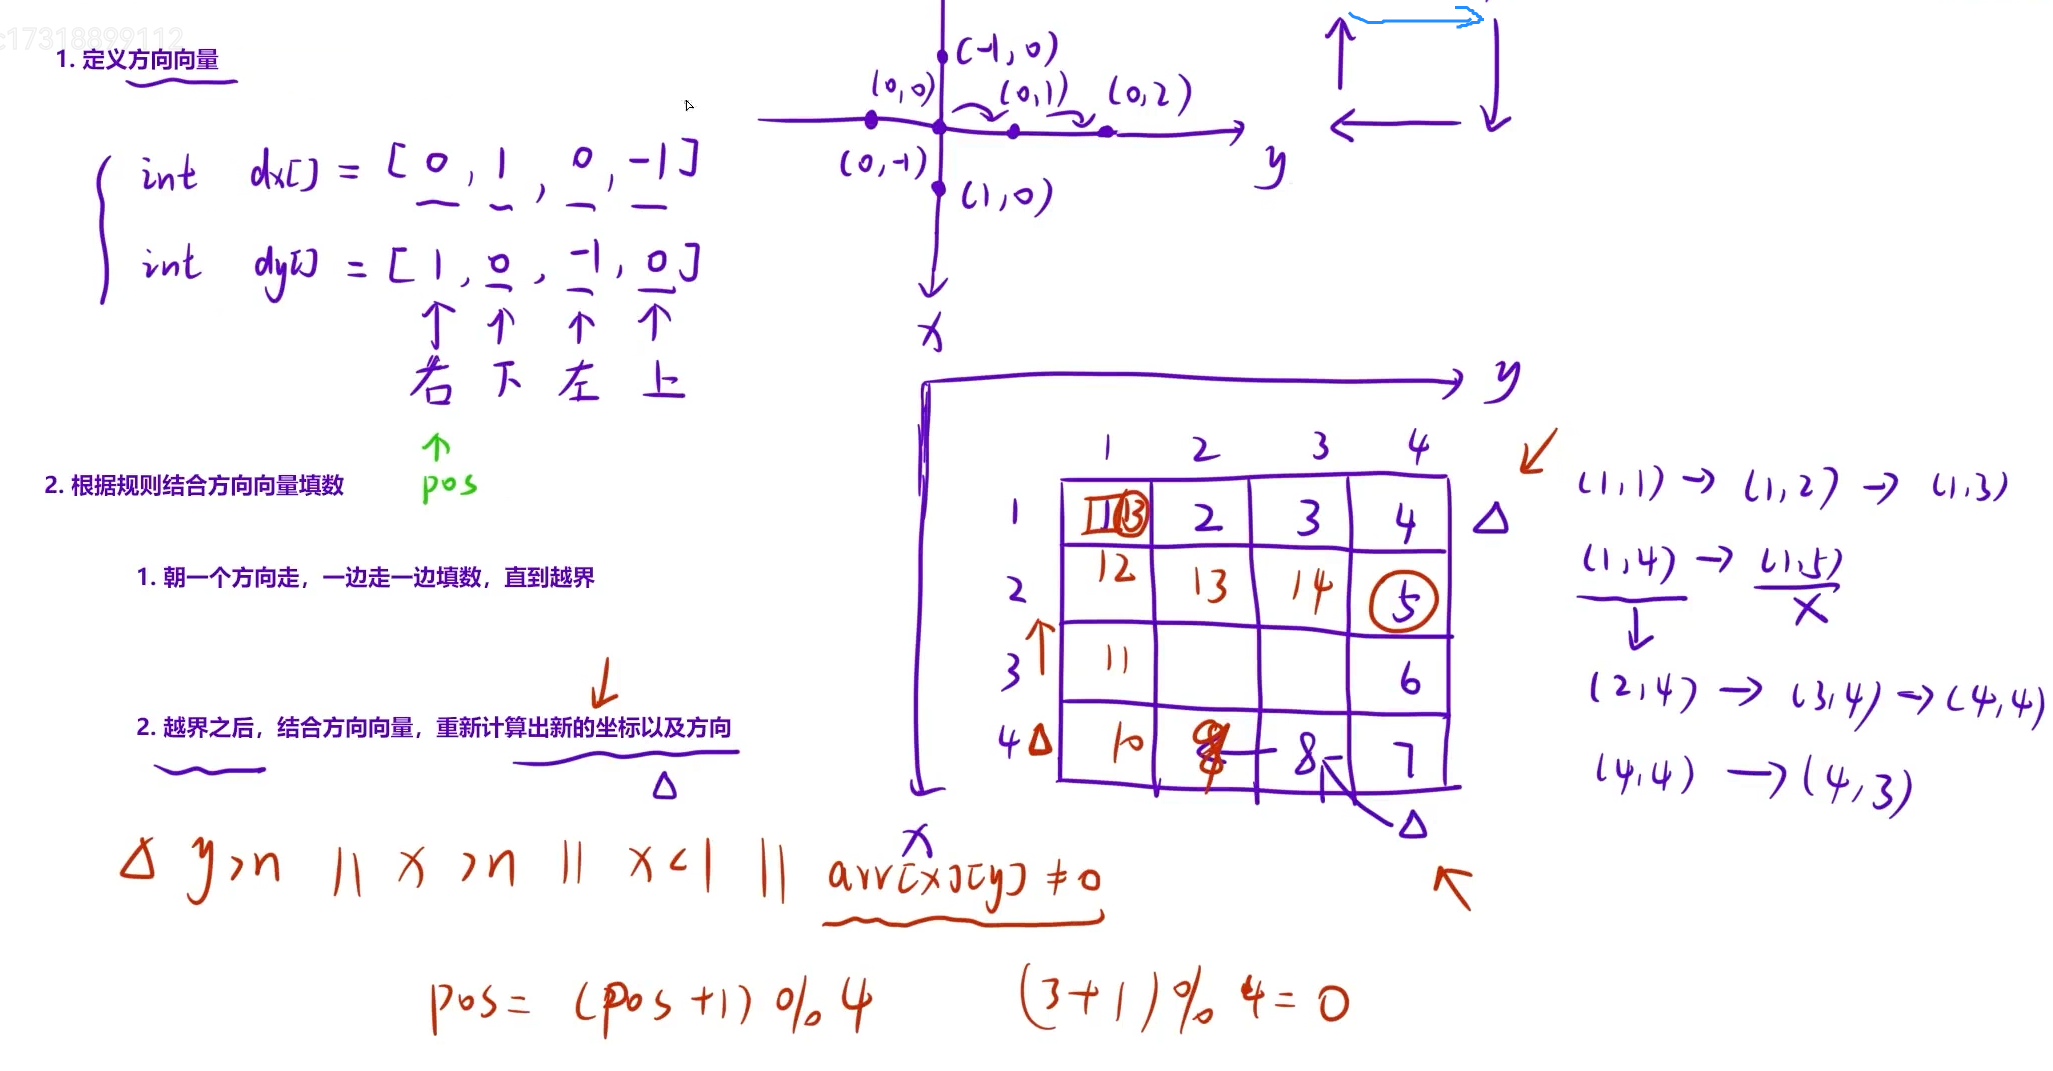 c17318899112
1. 定义方向向量
int dx[] = [0, 1, 0, -1]
int dy[] = [1, 0, -1, 0]
右 下 左 上
pos
(-1,0)
(0,0) (0,1) (0,2)
y
(0,-1)
(1,0)
x
2. 根据规则结合方向向量填数
1. 朝一个方向走，一边走一边填数，直到越界
2. 越界之后，结合方向向量，重新计算出新的坐标以及方向
Δ
y
1 2 3 4
1 1 13 2 3 4 Δ
2 12 13 14 5
3 11 6
4 Δ 10 8 7
Δ
x
(1,1) → (1,2) → (1,3)
(1,4) → (1,5)
x
(2,4) → (3,4) → (4,4)
(4,4) → (4,3)
Δ y>n || x>n || x<1 || arr[x][y] ≠ 0
pos = (pos+1) % 4 (3+1) % 4 = 0